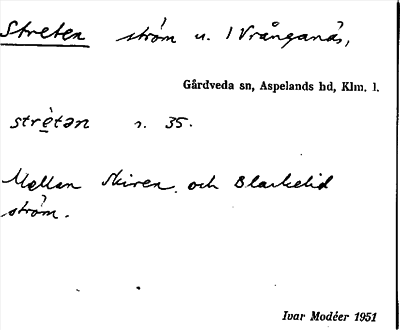 Streten ström u. 1 Vrånganäs,
Gårdveda sn, Aspelands hd, Klm. l.
strètən s. 35.
Mellan Skiren och Blankelid
ström.
Ivar Modéer 1951